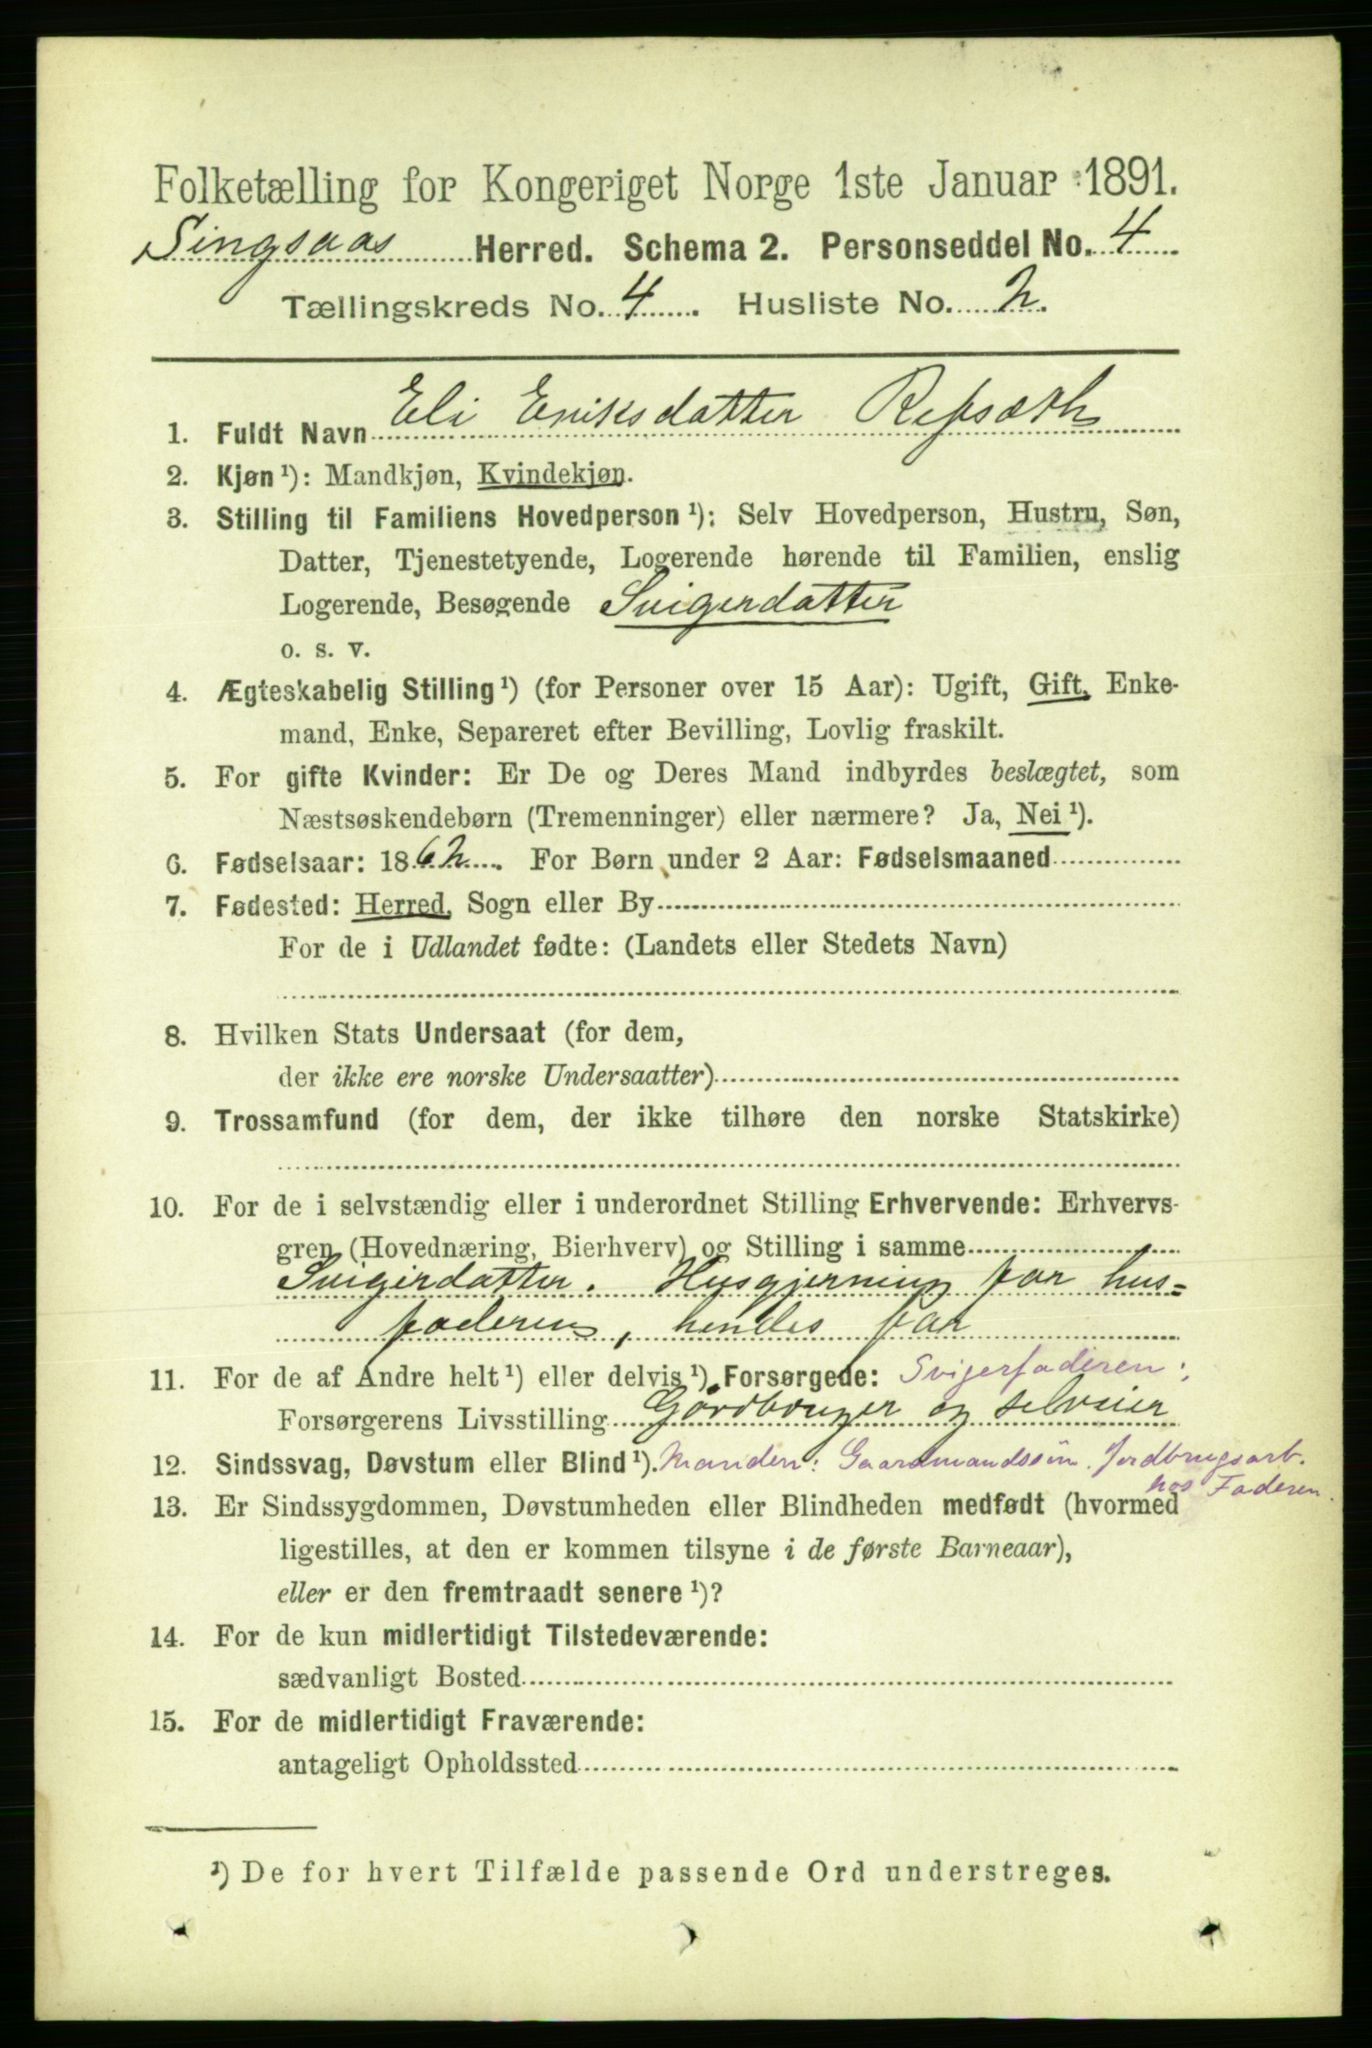 Folketælling for Kongeriget Norge 1ste Januar 1891.
Singsaas Herred. Schema 2. Personseddel No. 4
Tællingskreds No. 4. Husliste No. 2.
1. Fuldt Navn Eli Eriksdatter Refsæth
2. Kjøn¹): Mandkjøn, Kvindekjøn.
3. Stilling til Familiens Hovedperson¹): Selv Hovedperson, Hustru, Søn,
Datter, Tjenestetyende, Logerende hørende til Familien, enslig
Logerende, Besøgende Svigerdatter
o. s. v.
4. Ægteskabelig Stilling¹) (for Personer over 15 Aar): Ugift, Gift, Enke-
mand, Enke, Separeret efter Bevilling, Lovlig fraskilt.
5. For gifte Kvinder: Er De og Deres Mand indbyrdes beslægtet, som
Næstsøskendebørn (Tremenninger) eller nærmere? Ja, Nei¹).
6. Fødselsaar: 1862. For Børn under 2 Aar: Fødselsmaaned
7. Fødested: Herred, Sogn eller By
For de i Udlandet fødte: (Landets eller Stedets Navn)
8. Hvilken Stats Undersaat (for dem,
der ikke ere norske Undersaatter)
9. Trossamfund (for dem, der ikke tilhøre den norske Statskirke)
10. For de i selvstændig eller i underordnet Stilling Erhvervende: Erhvervs-
gren (Hovednæring, Bierhverv) og Stilling i samme
Svigerdatter. Husgjerning for hus-
faderen, hendes far
11. For de af Andre helt¹) eller delvis¹) Forsørgede: Svigerfaderen:
Forsørgerens Livsstilling Gårdbruger og selveier
12. Sindssvag, Døvstum eller Blind¹). Manden: Gaardmandssøn. Jordbrugsarb.
hos Faderen.
13. Er Sindssygdommen, Døvstumheden eller Blindheden medfødt (hvormed
ligestilles, at den er kommen tilsyne i de første Barneaar),
eller er den fremtraadt senere¹)?
14. For de kun midlertidigt Tilstedeværende:
sædvanligt Bosted
15. For de midlertidigt Fraværende:
antageligt Opholdssted
¹) De for hvert Tilfælde passende Ord understreges.